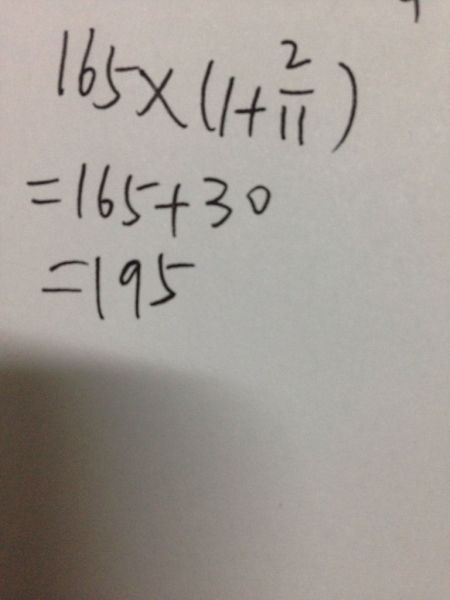 165×(1+2/11)
=165+30
=195